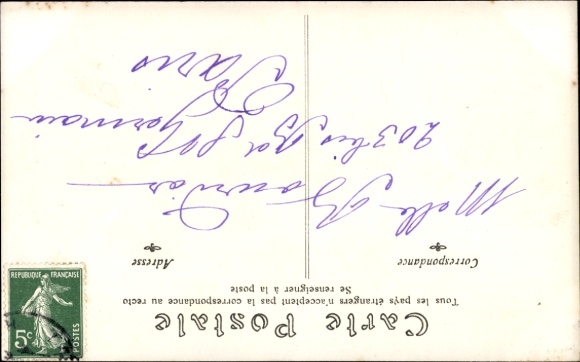 Carte Postale
Tous les pays étrangers n'acceptent pas la correspondance au recto
Se renseigner à la poste
Correspondance
Adresse
Melle
203 bis Bd St Germain
Paris
RÉPUBLIQUE FRANÇAISE
5c
POSTES